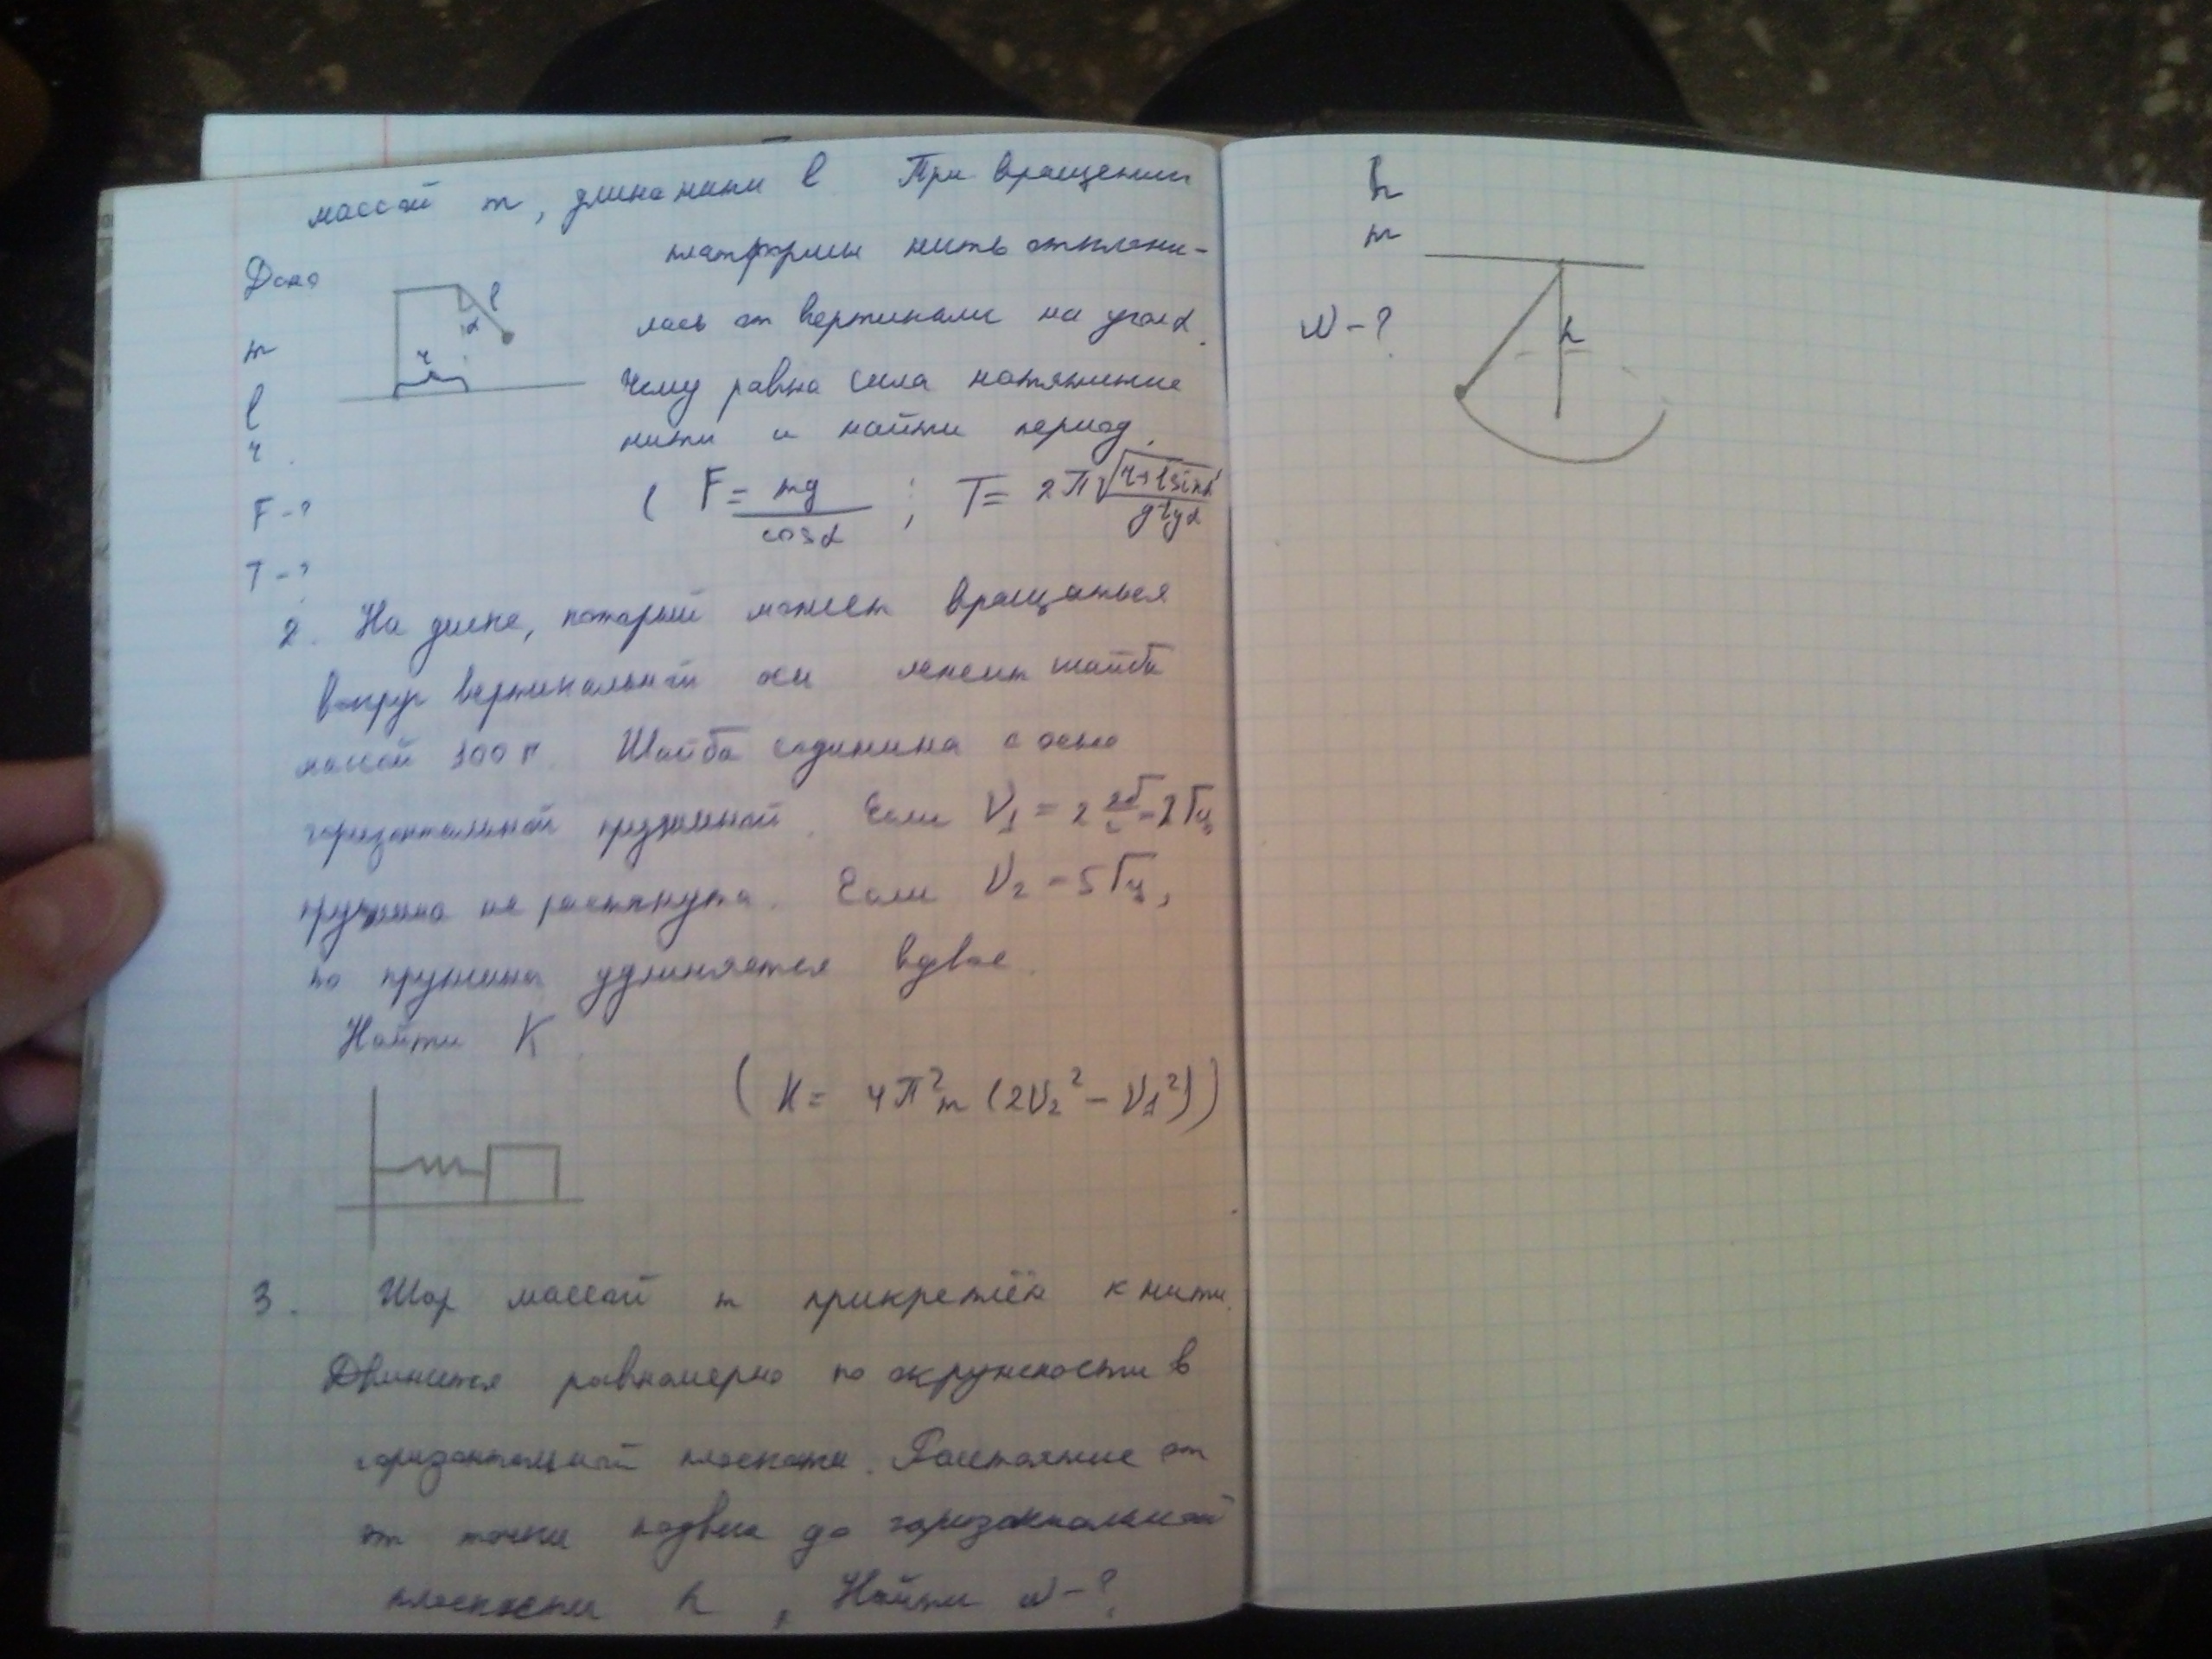 массой m, длина нити l При вращении
платформы нить отклони-
Дано
l
α
лась от вертикали на угол α.
m
r
Чему равна сила натяжение
l
нити и найти период.
r
( F = mg/cosα ; T = 2π√(r+l sinα)/(g tgα)
F - ?
T - ?
2. На диске, который может вращаться
вокруг вертикальной оси лежит шайба
массой 100 г. Шайба соединина с осью
горизонтальной пружиной. Если ν₁ = 2 об/с = 2 Гц
пружина не растянута. Если ν₂ = 5 Гц,
то пружина удлиняется вдвое.
Найти K
( K = 4π²m (2ν₂² - ν₁²))
3. Шар массой m прикреплён к нити.
Движется равномерно по окружности в
горизонтальной плоскости. Расстояние от
от точки подвеса до горизонтальной
плоскости h, Найти ω - ?
h
m
ω - ?
h